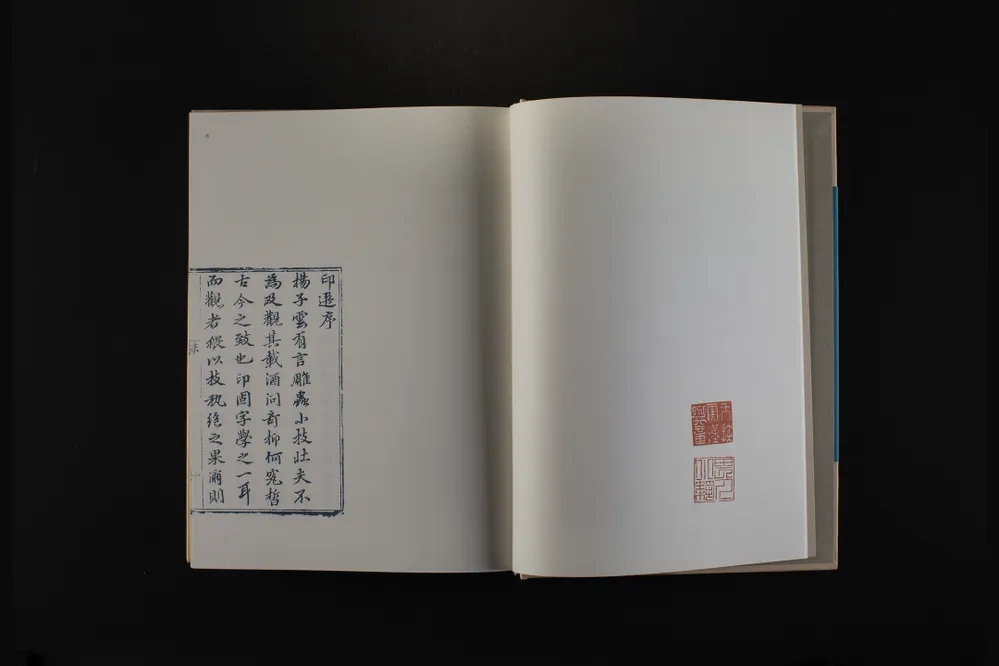 印選序
楊子雲有言雕蟲小技壯夫不
為及觀其載酒問奇抑何究晢
古今之致也印固字學之一耳
而觀者猥以技執絕之果爾則